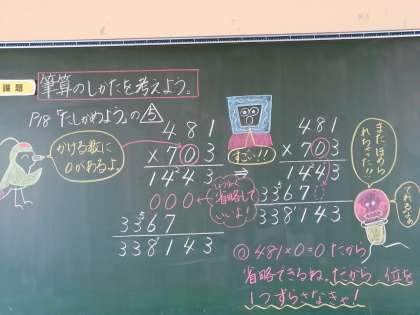 課題
筆算のしかたを考えよう。
P18 たしかめようの⚠5
かける数に
0があるよ。
481
×703
1443
000
3367
338143
すごい!!
⇒
省略して
いいよ！
481
×703
1443
3367
338143
またほめら
れちゃった!!
てれるなぁ
◎481×0=0だから
省略できるね。だから、位を
1つずらさなきゃ！